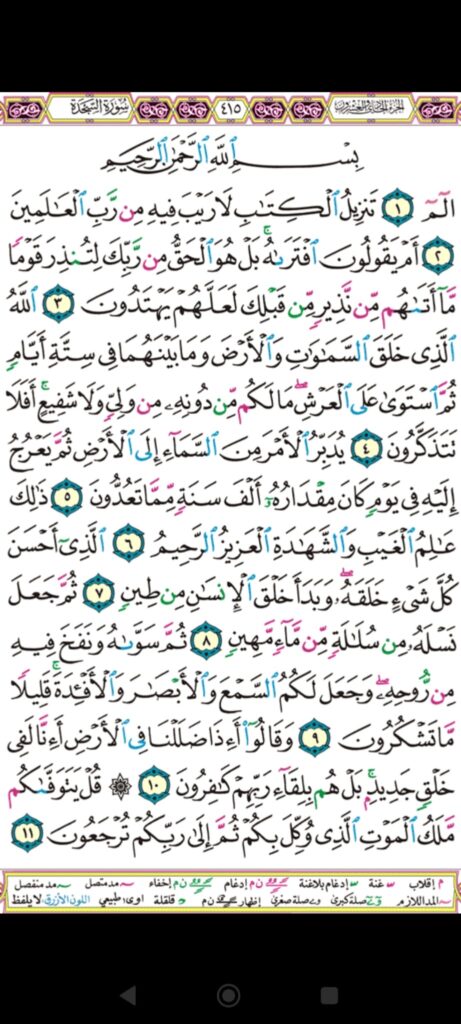 الجزء الحادي والعشرون ٤١٥ سُورَةُ السَّجْدَةِ
بِسْمِ ٱللَّهِ ٱلرَّحْمَٰنِ ٱلرَّحِيمِ
الٓمٓ ١ تَنزِيلُ ٱلْكِتَٰبِ لَا رَيْبَ فِيهِ مِن رَّبِّ ٱلْعَٰلَمِينَ
٢ أَمْ يَقُولُونَ ٱفْتَرَىٰهُ ۚ بَلْ هُوَ ٱلْحَقُّ مِن رَّبِّكَ لِتُنذِرَ قَوْمًا
مَّآ أَتَىٰهُم مِّن نَّذِيرٍ مِّن قَبْلِكَ لَعَلَّهُمْ يَهْتَدُونَ ٣ ٱللَّهُ
ٱلَّذِى خَلَقَ ٱلسَّمَٰوَٰتِ وَٱلْأَرْضَ وَمَا بَيْنَهُمَا فِى سِتَّةِ أَيَّامٍ
ثُمَّ ٱسْتَوَىٰ عَلَى ٱلْعَرْشِ ۖ مَا لَكُم مِّن دُونِهِۦ مِن وَلِىٍّ وَلَا شَفِيعٍ ۚ أَفَلَا
تَتَذَكَّرُونَ ٤ يُدَبِّرُ ٱلْأَمْرَ مِنَ ٱلسَّمَآءِ إِلَى ٱلْأَرْضِ ثُمَّ يَعْرُجُ
إِلَيْهِ فِى يَوْمٍ كَانَ مِقْدَارُهُۥٓ أَلْفَ سَنَةٍ مِّمَّا تَعُدُّونَ ٥ ذَٰلِكَ
عَٰلِمُ ٱلْغَيْبِ وَٱلشَّهَٰدَةِ ٱلْعَزِيزُ ٱلرَّحِيمُ ٦ ٱلَّذِىٓ أَحْسَنَ
كُلَّ شَىْءٍ خَلَقَهُۥ ۖ وَبَدَأَ خَلْقَ ٱلْإِنسَٰنِ مِن طِينٍ ٧ ثُمَّ جَعَلَ
نَسْلَهُۥ مِن سُلَٰلَةٍ مِّن مَّآءٍ مَّهِينٍ ٨ ثُمَّ سَوَّىٰهُ وَنَفَخَ فِيهِ
مِن رُّوحِهِۦ ۖ وَجَعَلَ لَكُمُ ٱلسَّمْعَ وَٱلْأَبْصَٰرَ وَٱلْأَفْـِٔدَةَ ۚ قَلِيلًا
مَّا تَشْكُرُونَ ٩ وَقَالُوٓا۟ أَءِذَا ضَلَلْنَا فِى ٱلْأَرْضِ أَءِنَّا لَفِى
خَلْقٍ جَدِيدٍۭ ۚ بَلْ هُم بِلِقَآءِ رَبِّهِمْ كَٰفِرُونَ ١٠ ۞ قُلْ يَتَوَفَّىٰكُم
مَّلَكُ ٱلْمَوْتِ ٱلَّذِى وُكِّلَ بِكُمْ ثُمَّ إِلَىٰ رَبِّكُمْ تُرْجَعُونَ ١١
م إقلاب غنة إدغام بلاغنة ن م إدغام ن م إخفاء مد متصل مد منفصل
المد اللازم صلة كبرى صلة صغرى إظهار ن م قلقلة اوى طبيعي اللون الأزرق لا يلفظ